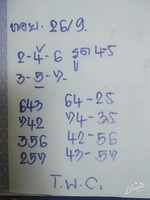 หวย. 26/9.
2-4-6 รูด 4-5
3-5-7.
643 64-25
742 74-35
356 42-56
257 43-57
T.W.C.